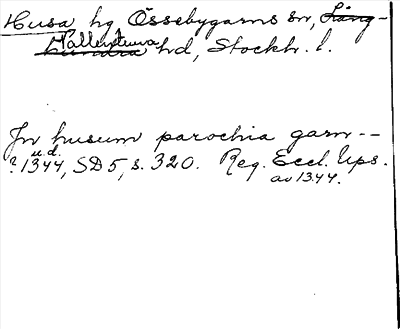 Husa hg Össebygarns sn, Lång-
hundra Vallentuna hd, Stockh. l.
In husum parochia garn --
? 1344, u.d. SD 5, s. 320. Reg. Eccl. Ups.
av 1344.